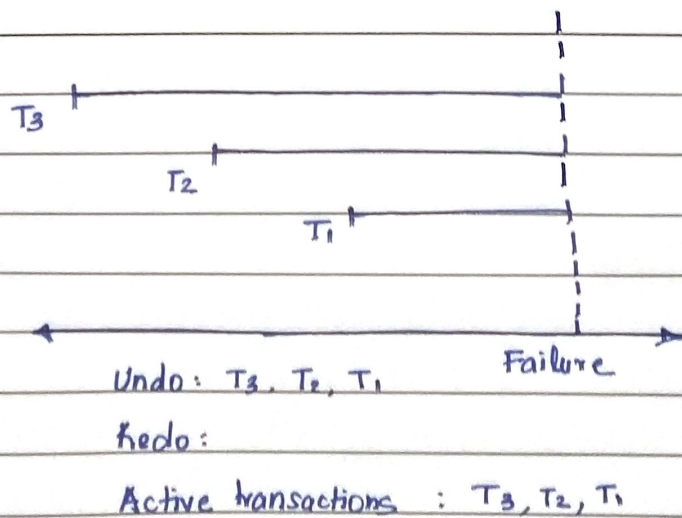 T3
T2
T1
Failure
Undo: T3, T2, T1
Redo:
Active transactions : T3, T2, T1